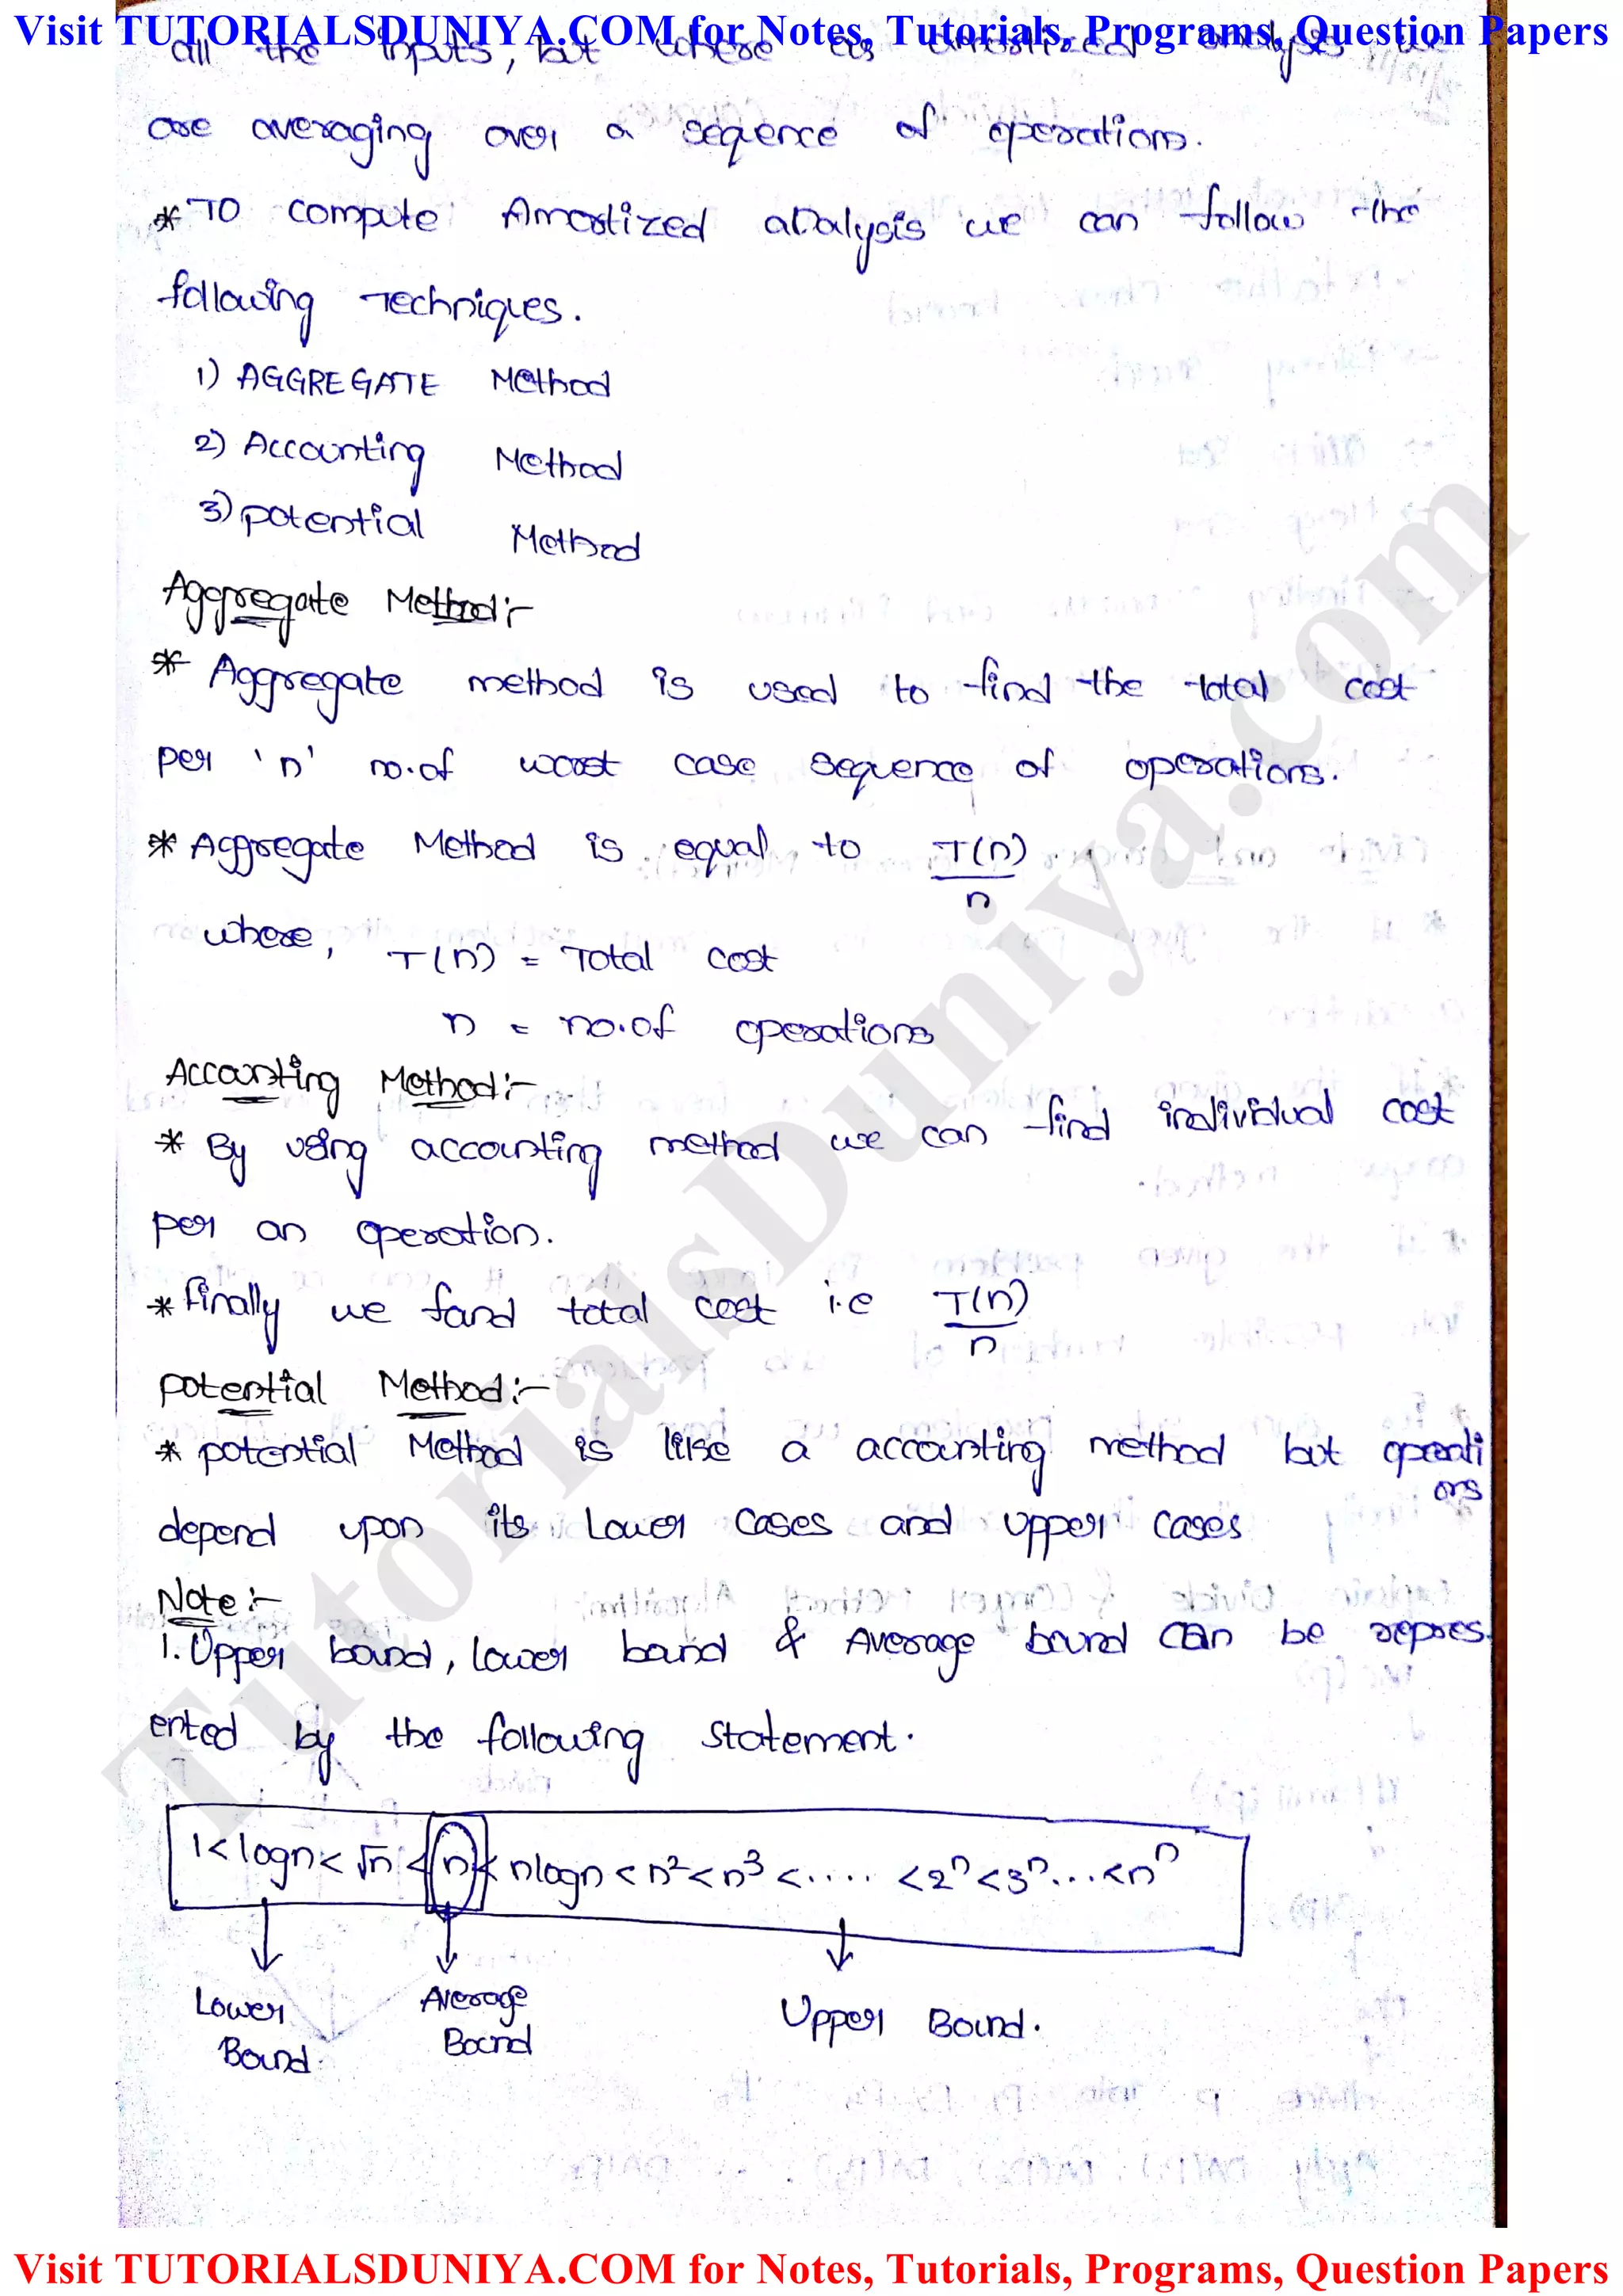 Visit TUTORIALSDUNIYA.COM for Notes, Tutorials, Programs, Question Papers
all the inputs, but where as amortized analysis we
are averaging over a seqence of operations.
* TO compute Amortized analysis we can follow the
following Techniques.
1) AGGREGATE Method
2) Accounting Method
3) potential Method
Aggregate Method:-
* Aggregate method is used to find the total cost
per 'n' no.of worst case sequence of operations.
* Aggregate Method is equal to T(n)/n
where, T(n) = Total cost
n = no.of operations
Accounting Method:-
* By using accounting method we can find individual cost
per an operation.
* finally we fand total cost i.e T(n)/n
potential Method:-
* potential Method is like a accounting method but operati
ons
depend upon its Lower cases and upper cases
Note:-
1. Upper bound, lower bound & Average bound can be repres
ented by the following statement.
1 < logn < √n < n < nlogn < n² < n³ < ..... < 2ⁿ < 3ⁿ ... < nⁿ
Lower Bound.
Average Bound
Upper Bound.
TutorialsDuniya.com
Visit TUTORIALSDUNIYA.COM for Notes, Tutorials, Programs, Question Papers